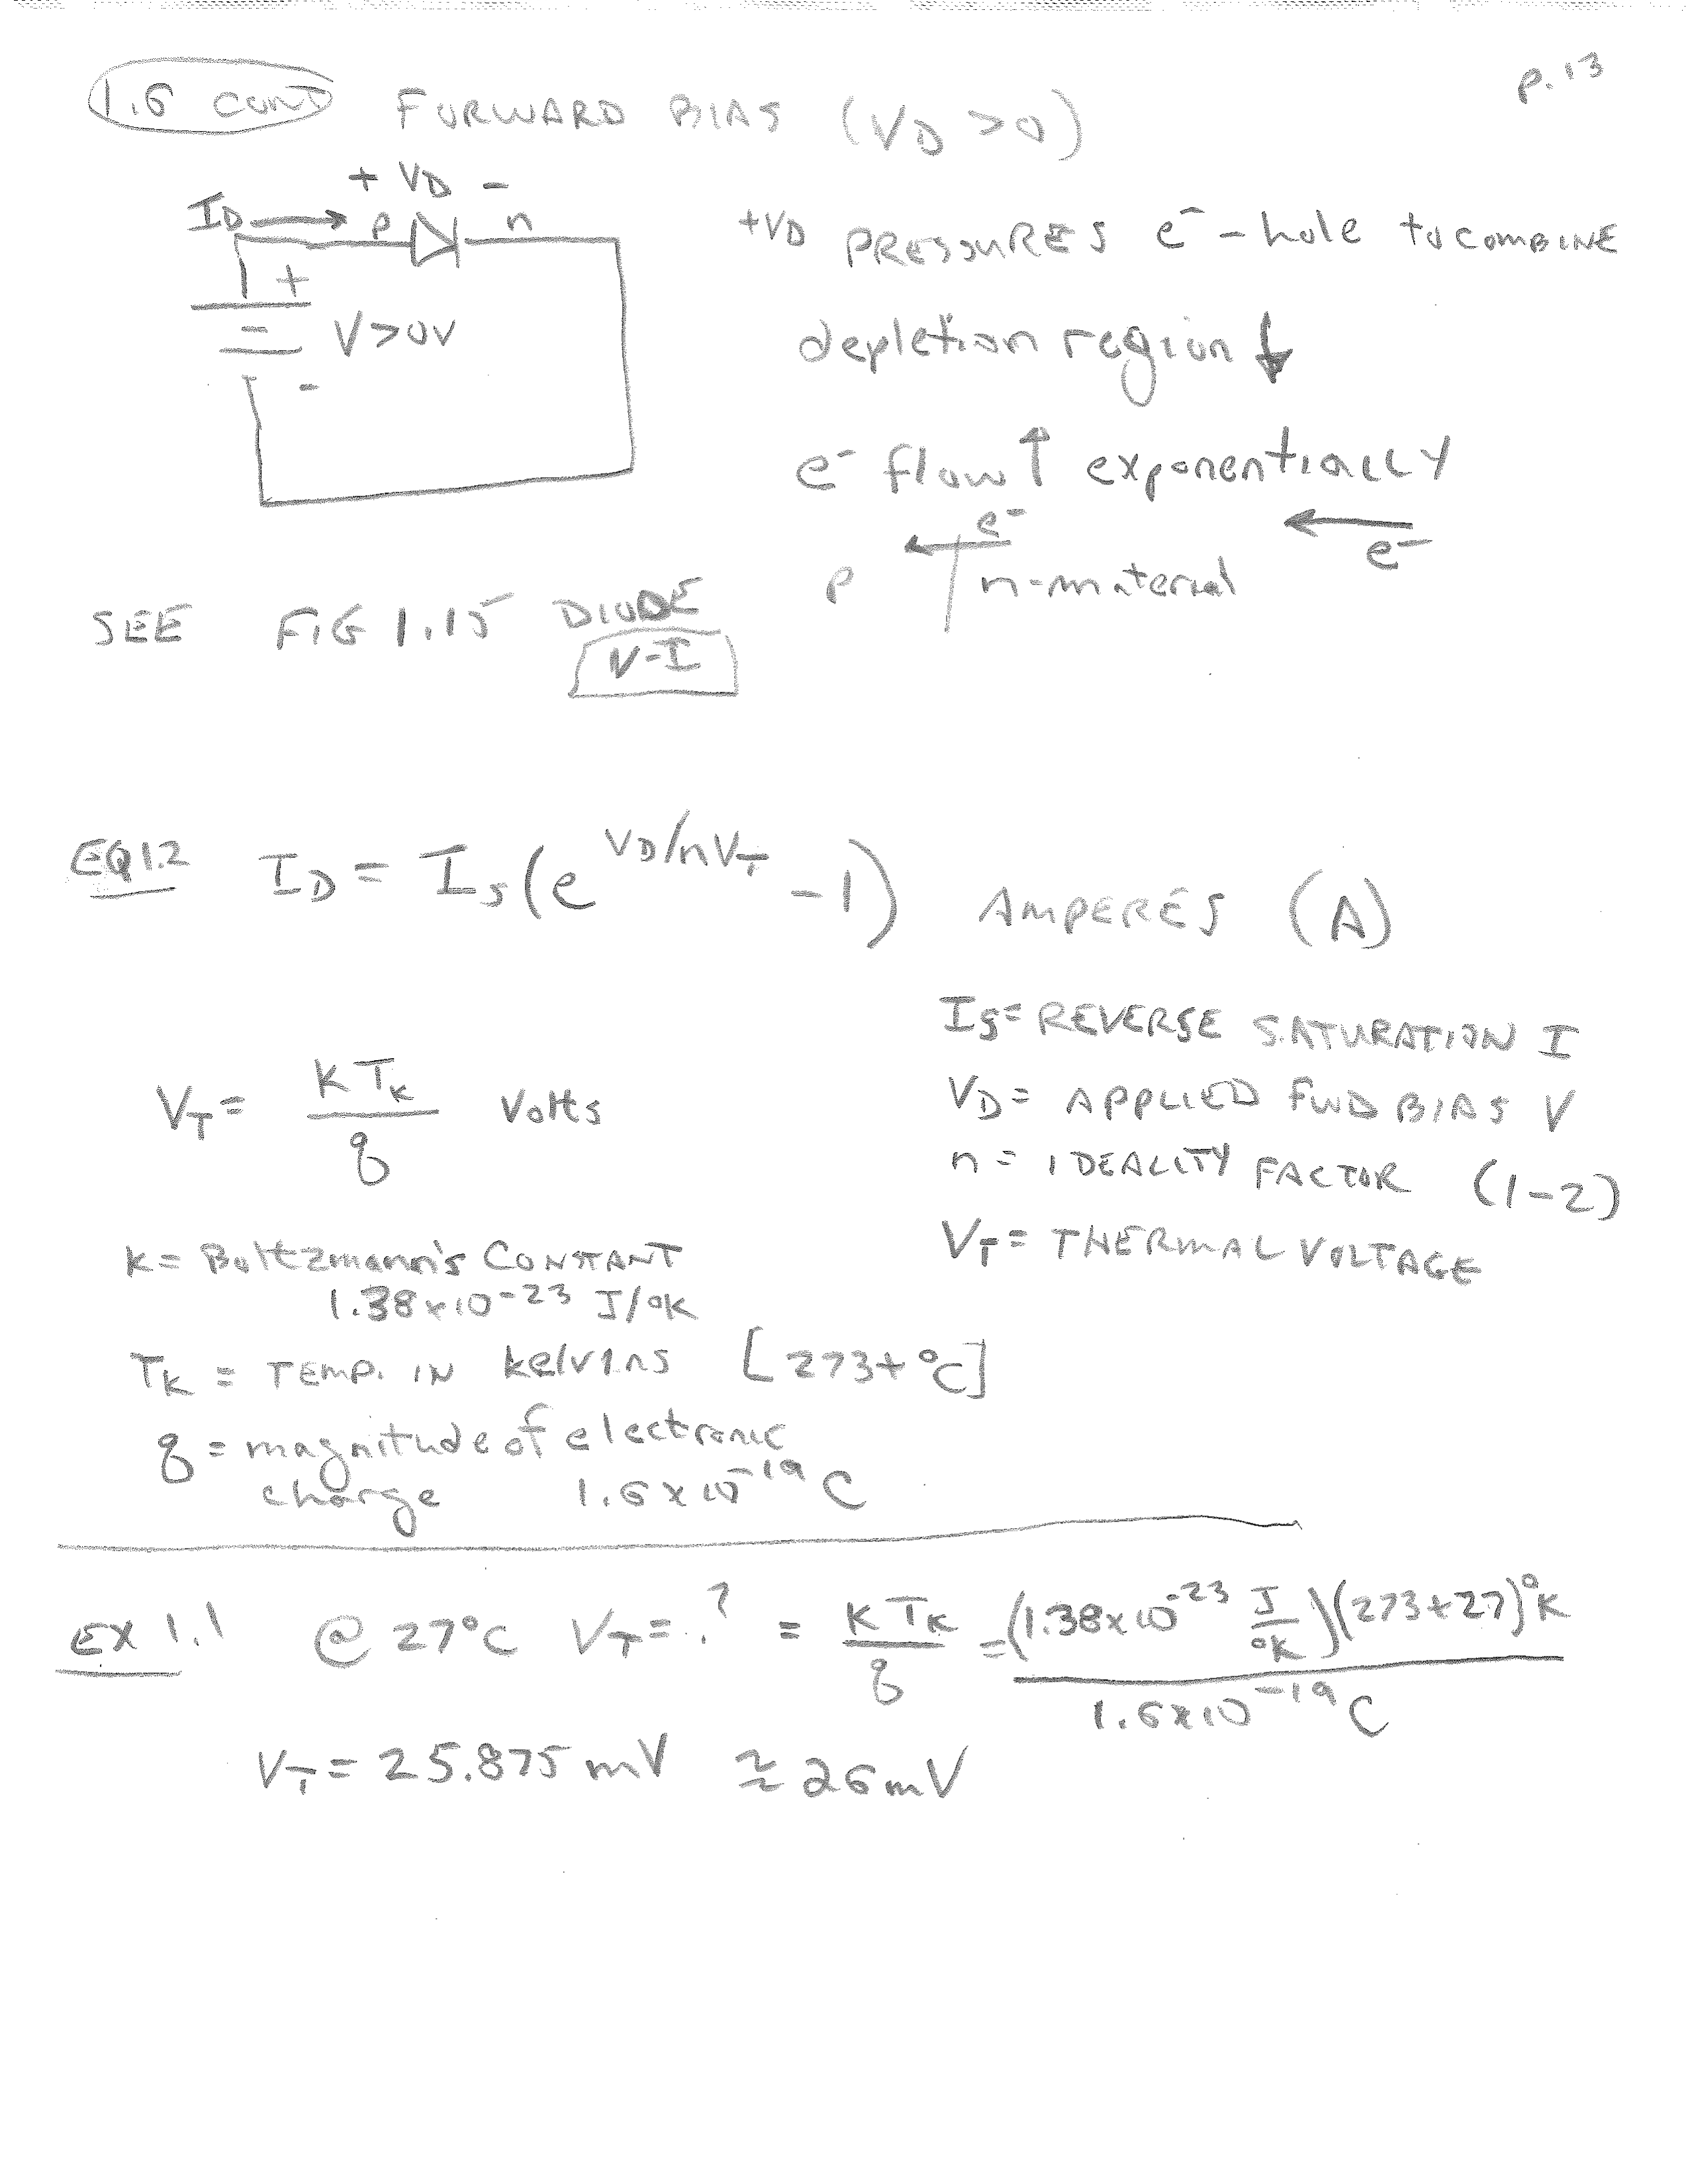 p.13
1.6 CONT FORWARD BIAS (VD >0)
+ VD -
ID p n
+
V>0V
-
+VD PRESSURES e⁻-hole to COMBINE
depletion region ↓
e⁻ flow ↑ exponentially
e⁻ ← e⁻
p n-material
SEE FIG 1.15 DIODE
V-I
EQ1.2 ID = Is(e^VD/nVT -1) AMPERES (A)
Is= REVERSE SATURATION I
VD= APPLIED FWD BIAS V
n = IDEALITY FACTOR (1-2)
VT= THERMAL VOLTAGE
VT= kTK/q Volts
k= Boltzmann's CONSTANT
1.38x10⁻²³ J/°K
TK = TEMP. IN kelvins [273+°C]
q = magnitude of electronic
charge 1.6x10⁻¹⁹ C
EX 1.1 @ 27°C VT=? = kTK/q = (1.38x10⁻²³ J/°K)(273+27)°K / 1.6x10⁻¹⁹ C
VT= 25.875 mV ≈ 26mV